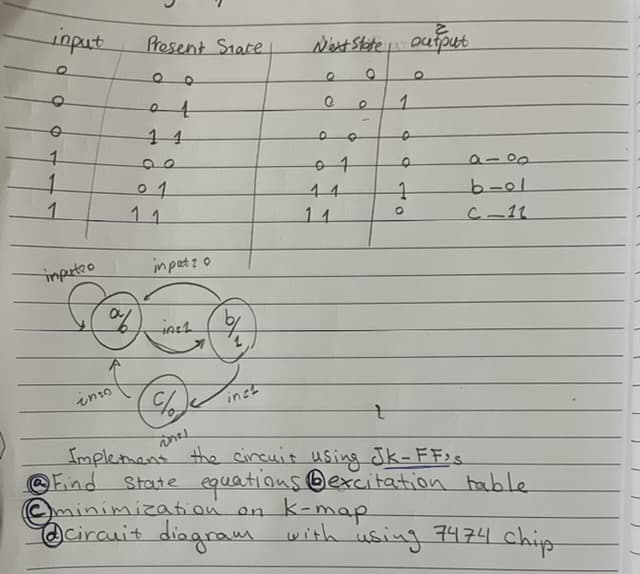 input Present State Next State output
z
0 0 0 0 0 0
0 0 1 0 0 1
0 1 1 0 0 0
1 0 0 0 1 0 a-00
1 0 1 1 1 1 b-01
1 1 1 1 1 0 c-11
input=0 input=0
a/0 in=1 b/1
in=0 c/0 in=1
in=1
Implement the circuit using JK-FF's
(a) Find state equations (b) excitation table
(c) minimization on k-map
(d) circuit diagram with using 7474 chip